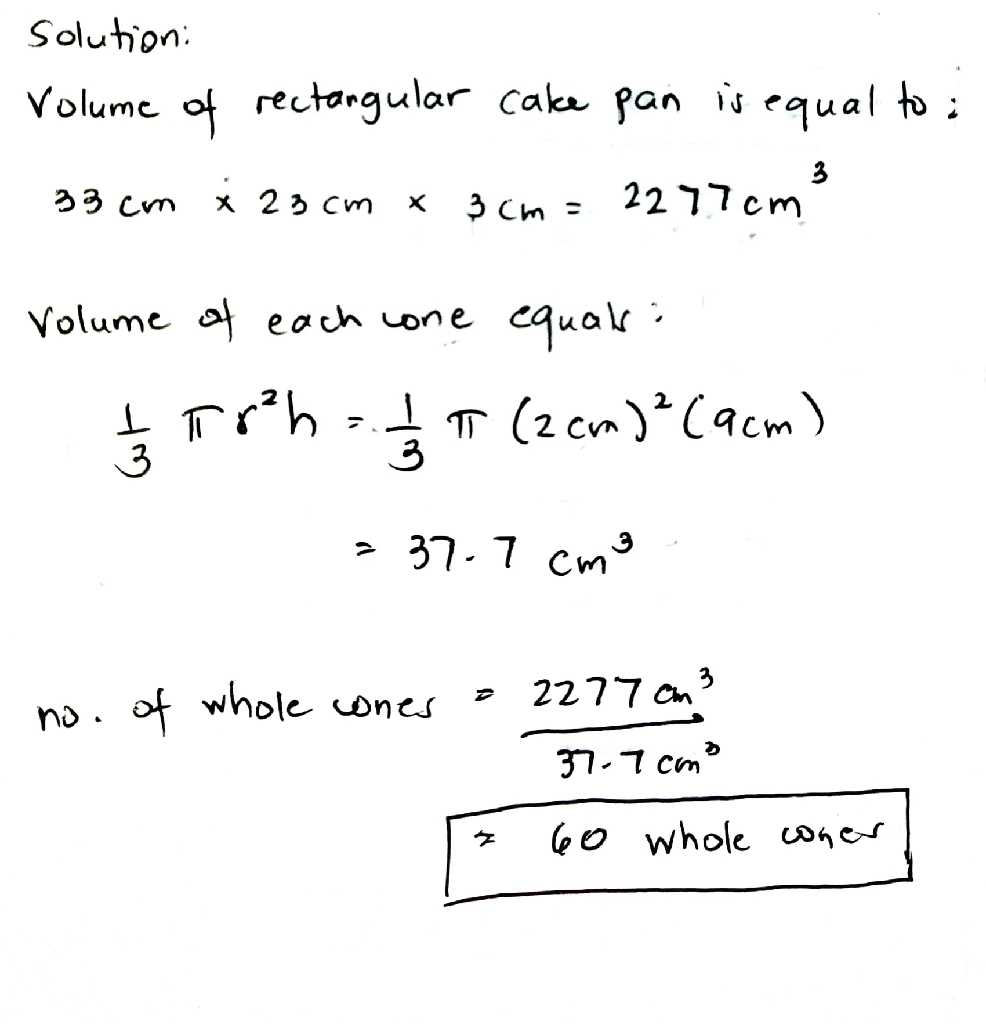 Solution:
Volume of rectangular cake pan is equal to :
33 cm x 23 cm x 3 cm = 2277 cm³
Volume of each cone equals :
1/3 πr²h = 1/3 π (2 cm)² (9cm)
= 37.7 cm³
no. of whole cones = 2277 cm³
37.7 cm³
= 60 whole cones